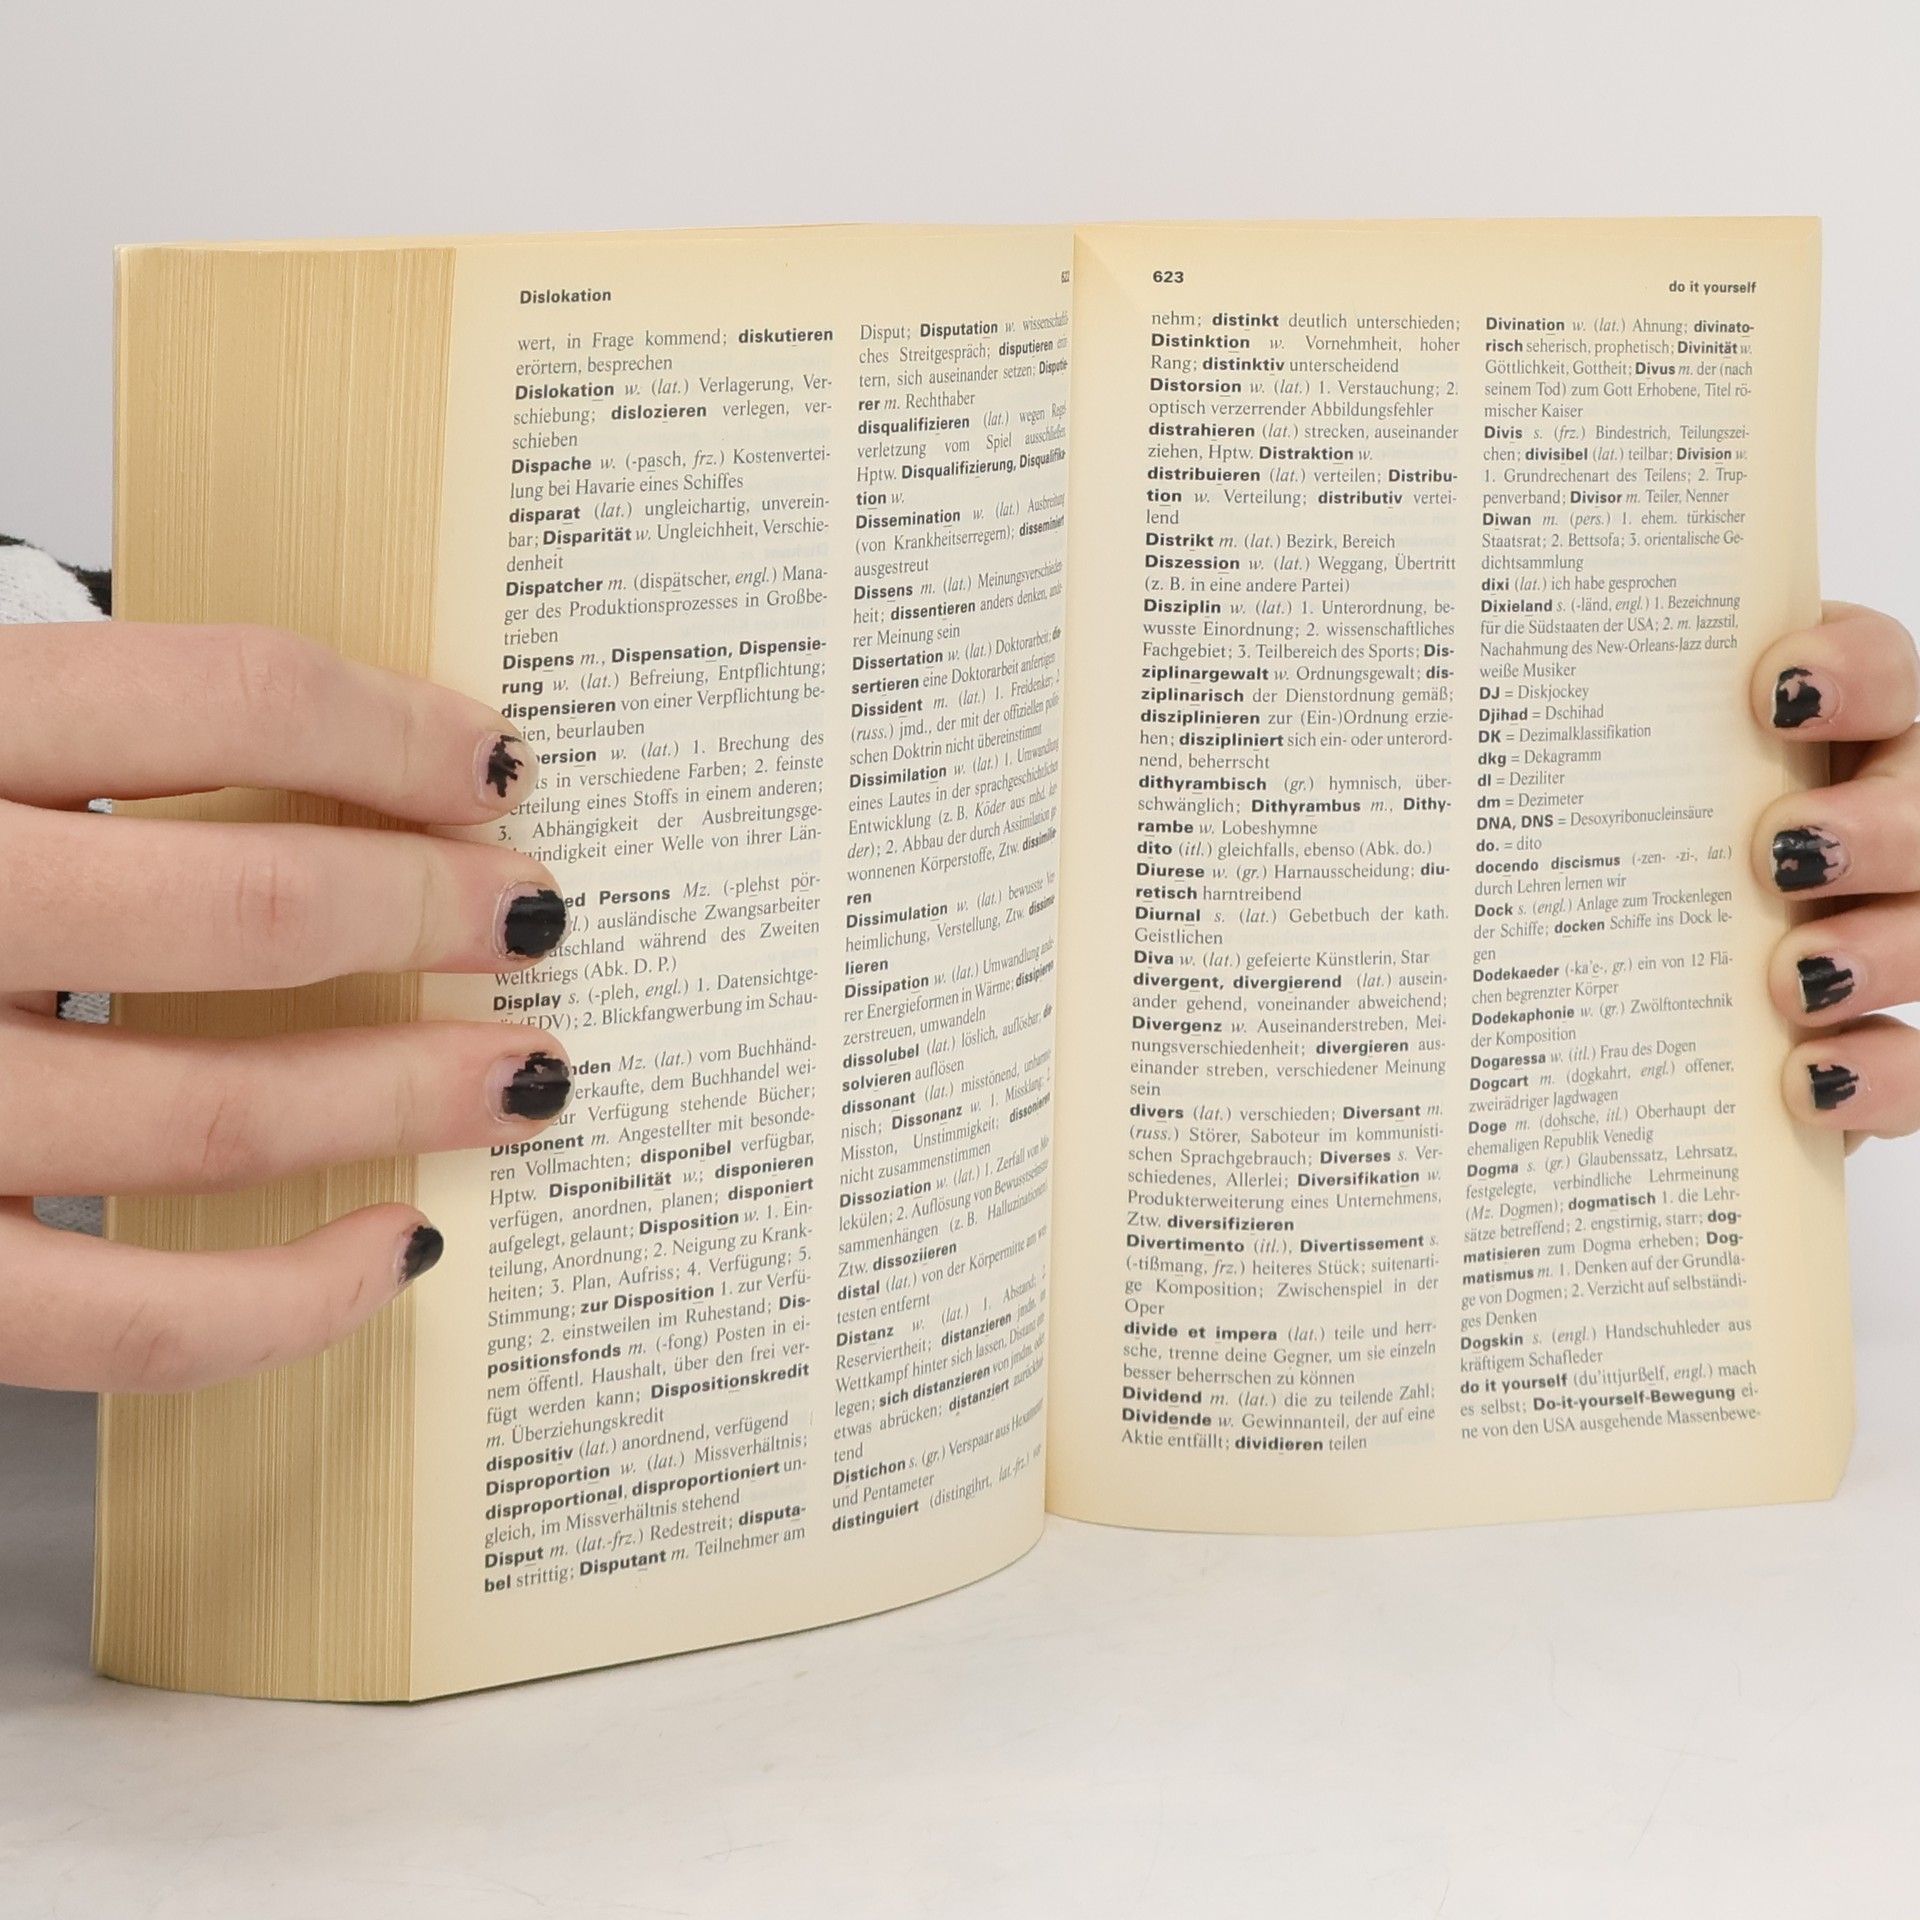 Dislokation
622
wert, in Frage kommend; diskutieren
erörtern, besprechen
Dislokation w. (lat.) Verlagerung, Ver-
schiebung; dislozieren verlegen, ver-
schieben
Dispache w. (-pasch, frz.) Kostenvertei-
lung bei Havarie eines Schiffes
disparat (lat.) ungleichartig, unverein-
bar; Disparität w. Ungleichheit, Verschie-
denheit
Dispatcher m. (dispätscher, engl.) Mana-
ger des Produktionsprozesses in Großbe-
trieben
Dispens m., Dispensation, Dispensie-
rung w. (lat.) Befreiung, Entpflichtung;
dispensieren von einer Verpflichtung be-
ien, beurlauben
persion w. (lat.) 1. Brechung des
ts in verschiedene Farben; 2. feinste
erteilung eines Stoffs in einem anderen;
3. Abhängigkeit der Ausbreitungsge-
windigkeit einer Welle von ihrer Län-
ed Persons Mz. (-plehst pör-
l.) ausländische Zwangsarbeiter
tschland während des Zweiten
Weltkriegs (Abk. D. P.)
Display s. (-pleh, engl.) 1. Datensichtge-
(EDV); 2. Blickfangwerbung im Schau-
nden Mz. (lat.) vom Buchhänd-
erkaufte, dem Buchhandel wei-
ur Verfügung stehende Bücher;
Disponent m. Angestellter mit besonde-
ren Vollmachten; disponibel verfügbar,
Hptw. Disponibilität w.; disponieren
verfügen, anordnen, planen; disponiert
aufgelegt, gelaunt; Disposition w. 1. Ein-
teilung, Anordnung; 2. Neigung zu Krank-
heiten; 3. Plan, Aufriss; 4. Verfügung; 5.
Stimmung; zur Disposition 1. zur Verfü-
gung; 2. einstweilen im Ruhestand; Dis-
positionsfonds m. (-fong) Posten in ei-
nem öffentl. Haushalt, über den frei ver-
fügt werden kann; Dispositionskredit
m. Überziehungskredit
dispositiv (lat.) anordnend, verfügend
Disproportion w. (lat.) Missverhältnis;
disproportional, disproportioniert un-
gleich, im Missverhältnis stehend
Disput m. (lat.-frz.) Redestreit; disputa-
bel strittig; Disputant m. Teilnehmer am
Disput; Disputation w. wissenschaftli-
ches Streitgespräch; disputieren erör-
tern, sich auseinander setzen; Disputie-
rer m. Rechthaber
disqualifizieren (lat.) wegen Regel-
verletzung vom Spiel ausschließen,
Hptw. Disqualifizierung, Disqualifika-
tion w.
Dissemination w. (lat.) Ausbreitung
(von Krankheitserregern); disseminiert
ausgestreut
Dissens m. (lat.) Meinungsverschieden-
heit; dissentieren anders denken, ande-
rer Meinung sein
Dissertation w. (lat.) Doktorarbeit; dis-
sertieren eine Doktorarbeit anfertigen
Dissident m. (lat.) 1. Freidenker; 2.
(russ.) jmd., der mit der offiziellen politi-
schen Doktrin nicht übereinstimmt
Dissimilation w. (lat.) 1. Umwandlung
eines Lautes in der sprachgeschichtlichen
Entwicklung (z. B. Köder aus mhd.
der); 2. Abbau der durch Assimilation ge-
wonnenen Körperstoffe, Ztw. dissimilie-
ren
Dissimulation w. (lat.) bewusste Ver-
heimlichung, Verstellung, Ztw. dissimu-
lieren
Dissipation w. (lat.) Umwandlung ande-
rer Energieformen in Wärme; dissipieren
zerstreuen, umwandeln
dissolubel (lat.) löslich, auflösbar; dis-
solvieren auflösen
dissonant (lat.) misstönend, unharmo-
nisch; Dissonanz w. 1. Missklang; 2.
Misston, Unstimmigkeit; dissonieren
nicht zusammenstimmen
Dissoziation w. (lat.) 1. Zerfall von Mo-
lekülen; 2. Auflösung von Bewusstseinszu-
sammenhängen (z. B. Halluzinationen),
Ztw. dissoziieren
distal (lat.) von der Körpermitte am wei-
testen entfernt
Distanz w. (lat.) 1. Abstand; 2.
Reserviertheit; distanzieren jmdn. im
Wettkampf hinter sich lassen, Distanz
legen; sich distanzieren von jmdm. oder
etwas abrücken; distanziert zurückhal-
tend
Distichon s. (gr.) Verspaar aus Hexameter
und Pentameter
distinguiert (distingihrt, lat.-frz.) vor-
623
do it yourself
nehm; distinkt deutlich unterschieden;
Distinktion w. Vornehmheit, hoher
Rang; distinktiv unterscheidend
Distorsion w. (lat.) 1. Verstauchung; 2.
optisch verzerrender Abbildungsfehler
distrahieren (lat.) strecken, auseinander
ziehen, Hptw. Distraktion w.
distribuieren (lat.) verteilen; Distribu-
tion w. Verteilung; distributiv vertei-
lend
Distrikt m. (lat.) Bezirk, Bereich
Diszession w. (lat.) Weggang, Übertritt
(z. B. in eine andere Partei)
Disziplin w. (lat.) 1. Unterordnung, be-
wusste Einordnung; 2. wissenschaftliches
Fachgebiet; 3. Teilbereich des Sports; Dis-
ziplinargewalt w. Ordnungsgewalt; dis-
ziplinarisch der Dienstordnung gemäß;
disziplinieren zur (Ein-)Ordnung erzie-
hen; diszipliniert sich ein- oder unterord-
nend, beherrscht
dithyrambisch (gr.) hymnisch, über-
schwänglich; Dithyrambus m., Dithy-
rambe w. Lobeshymne
dito (itl.) gleichfalls, ebenso (Abk. do.)
Diurese w. (gr.) Harnausscheidung; diu-
retisch harntreibend
Diurnal s. (lat.) Gebetbuch der kath.
Geistlichen
Diva w. (lat.) gefeierte Künstlerin, Star
divergent, divergierend (lat.) ausein-
ander gehend, voneinander abweichend;
Divergenz w. Auseinanderstreben, Mei-
nungsverschiedenheit; divergieren aus-
einander streben, verschiedener Meinung
sein
divers (lat.) verschieden; Diversant m.
(russ.) Störer, Saboteur im kommunisti-
schen Sprachgebrauch; Diverses s. Ver-
schiedenes, Allerlei; Diversifikation w.
Produkterweiterung eines Unternehmens,
Ztw. diversifizieren
Divertimento (itl.), Divertissement s.
(-tißmang, frz.) heiteres Stück; suitenarti-
ge Komposition; Zwischenspiel in der
Oper
divide et impera (lat.) teile und herr-
sche, trenne deine Gegner, um sie einzeln
besser beherrschen zu können
Dividend m. (lat.) die zu teilende Zahl;
Dividende w. Gewinnanteil, der auf eine
Aktie entfällt; dividieren teilen
Divination w. (lat.) Ahnung; divinato-
risch seherisch, prophetisch; Divinität w.
Göttlichkeit, Gottheit; Divus m. der (nach
seinem Tod) zum Gott Erhobene, Titel rö-
mischer Kaiser
Divis s. (frz.) Bindestrich, Teilungszei-
chen; divisibel (lat.) teilbar; Division w.
1. Grundrechenart des Teilens; 2. Trup-
penverband; Divisor m. Teiler, Nenner
Diwan m. (pers.) 1. ehem. türkischer
Staatsrat; 2. Bettsofa; 3. orientalische Ge-
dichtsammlung
dixi (lat.) ich habe gesprochen
Dixieland s. (-länd, engl.) 1. Bezeichnung
für die Südstaaten der USA; 2. m. Jazzstil,
Nachahmung des New-Orleans-Jazz durch
weiße Musiker
DJ = Diskjockey
Djihad = Dschihad
DK = Dezimalklassifikation
dkg = Dekagramm
dl = Deziliter
dm = Dezimeter
DNA, DNS = Desoxyribonucleinsäure
do. = dito
docendo discimus (-zen- -zi-, lat.)
durch Lehren lernen wir
Dock s. (engl.) Anlage zum Trockenlegen
der Schiffe; docken Schiffe ins Dock le-
gen
Dodekaeder (-ka'e-, gr.) ein von 12 Flä-
chen begrenzter Körper
Dodekaphonie w. (gr.) Zwölftontechnik
der Komposition
Dogaressa w. (itl.) Frau des Dogen
Dogcart m. (dogkahrt, engl.) offener,
zweirädriger Jagdwagen
Doge m. (dohsche, itl.) Oberhaupt der
ehemaligen Republik Venedig
Dogma s. (gr.) Glaubenssatz, Lehrsatz,
festgelegte, verbindliche Lehrmeinung
(Mz. Dogmen); dogmatisch 1. die Lehr-
sätze betreffend; 2. engstirnig, starr; dog-
matisieren zum Dogma erheben; Dog-
matismus m. 1. Denken auf der Grundla-
ge von Dogmen; 2. Verzicht auf selbständi-
ges Denken
Dogskin s. (engl.) Handschuhleder aus
kräftigem Schafleder
do it yourself (du'ittjurßelf, engl.) mach
es selbst; Do-it-yourself-Bewegung ei-
ne von den USA ausgehende Massenbewe-